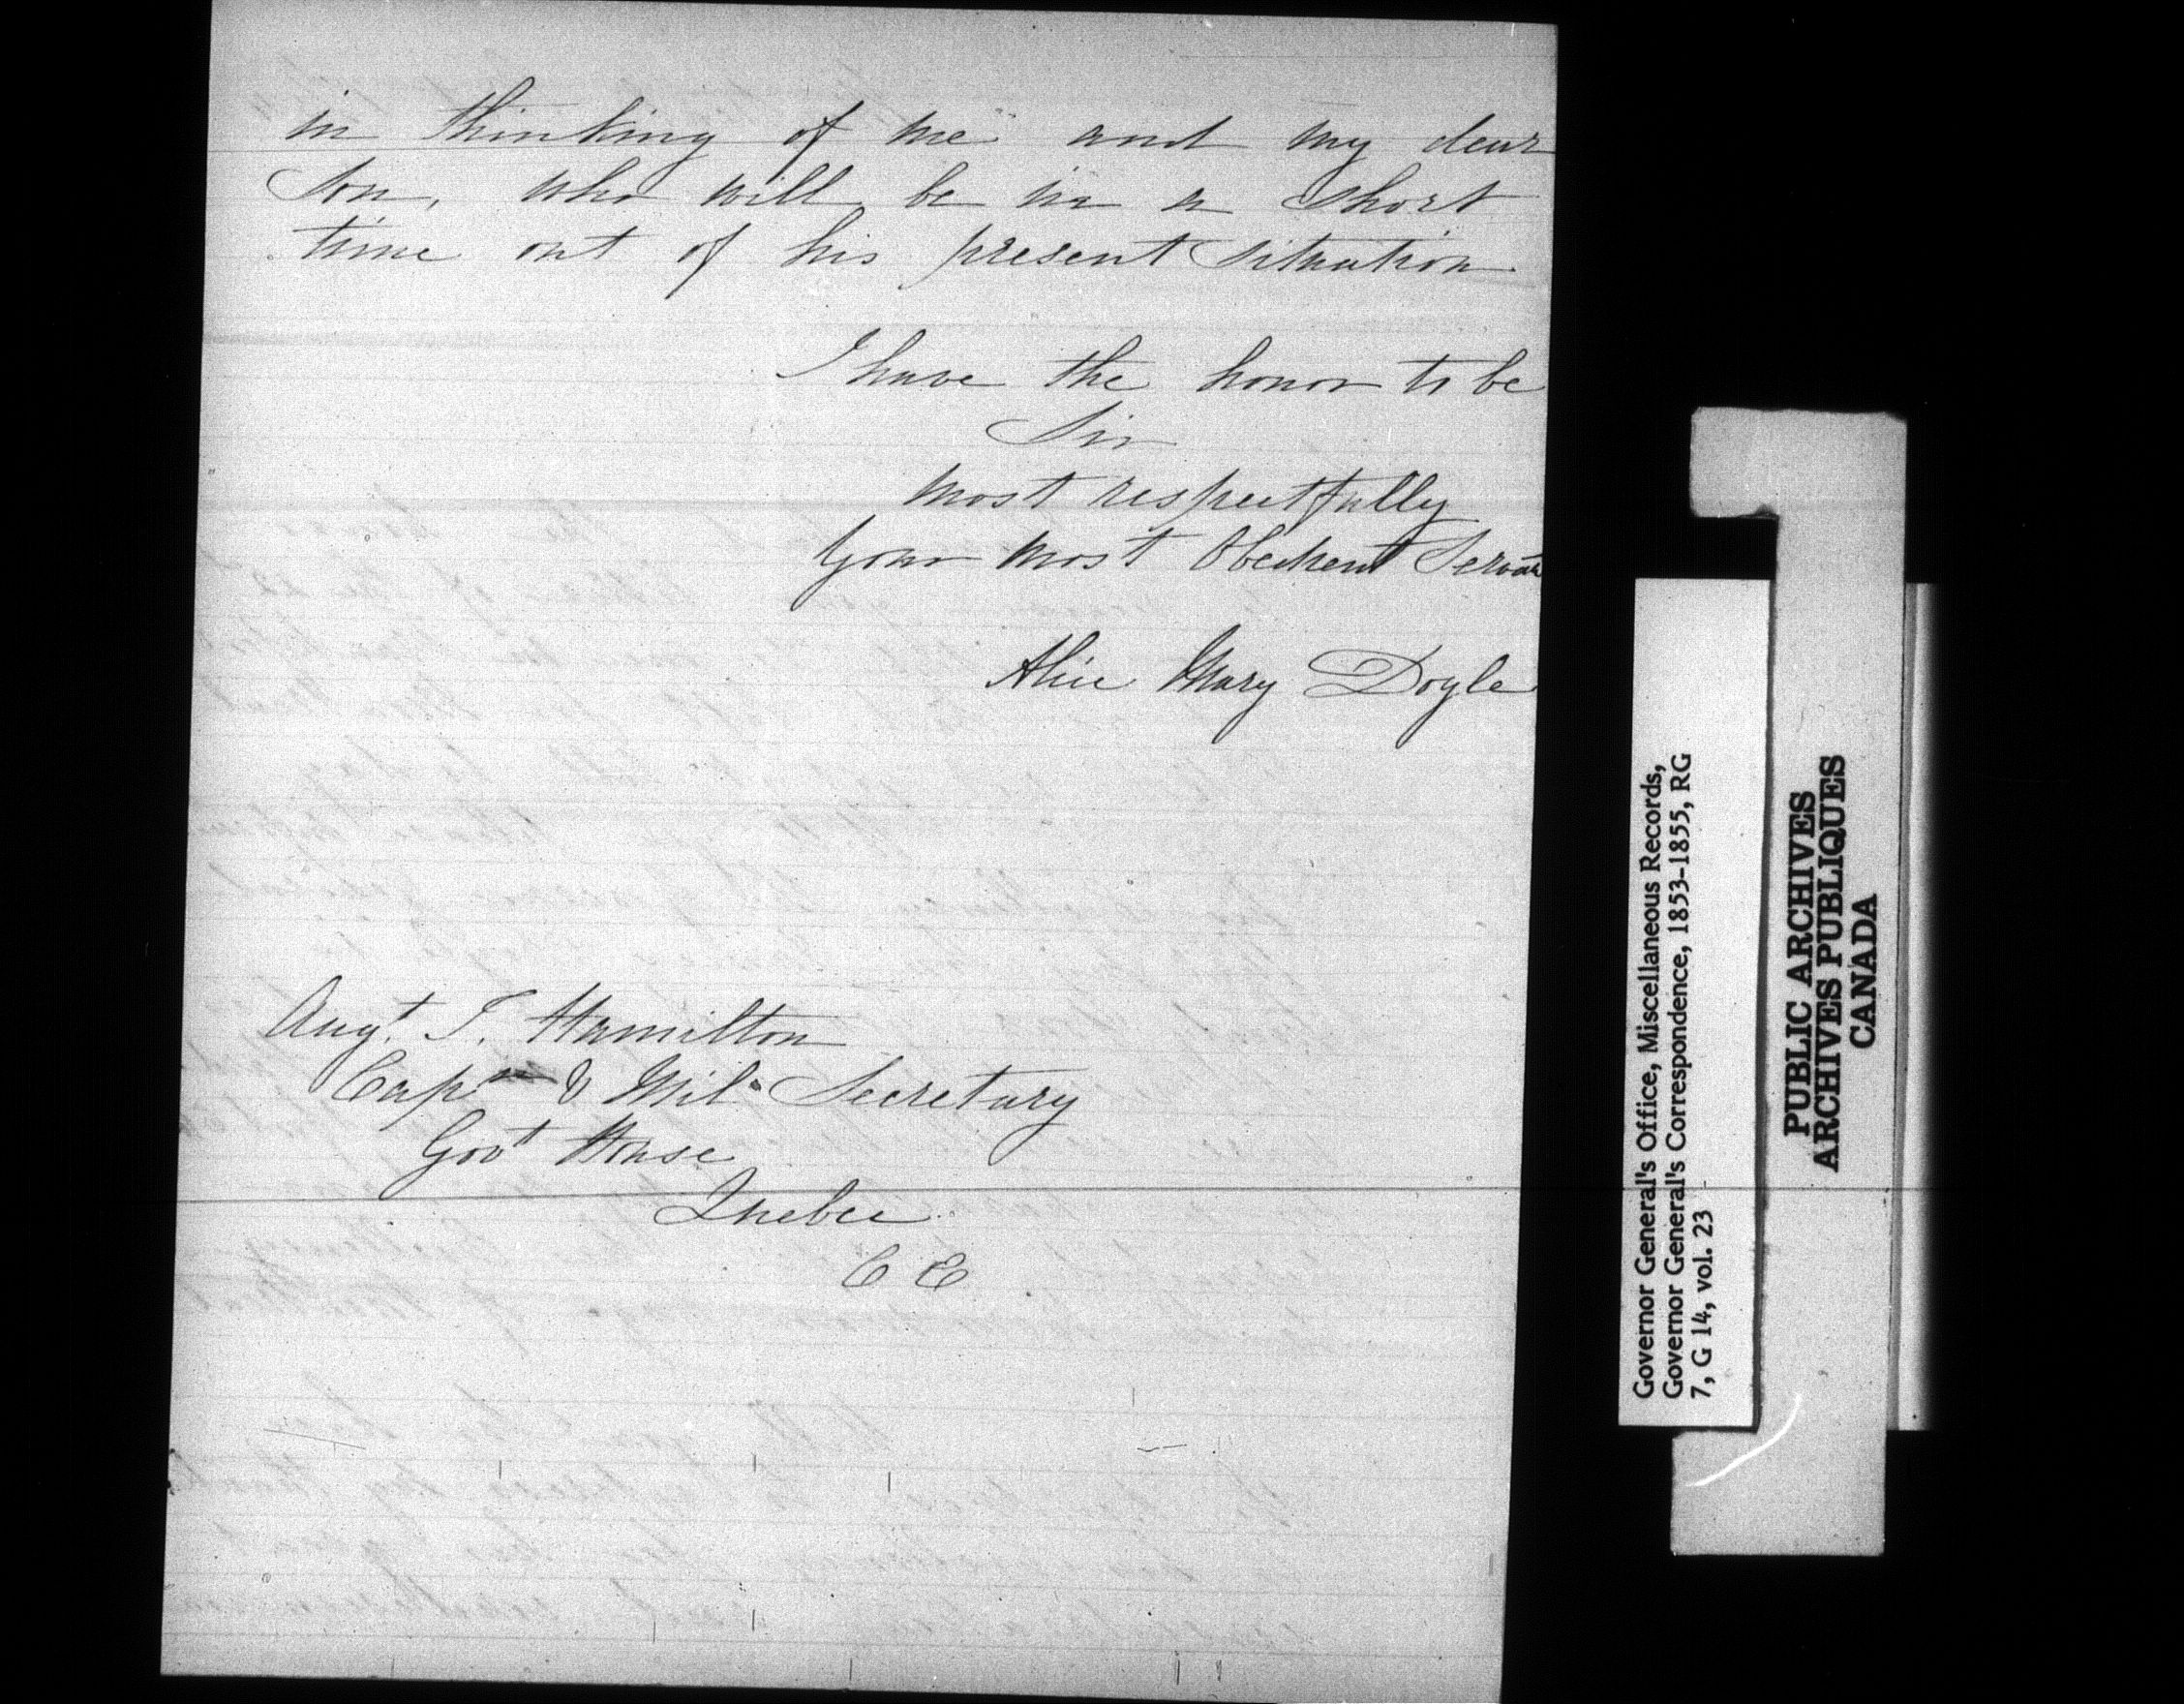 in thinking of me and my dear
Son, who will be in a short
time out of his present situation
I have the honor to be
Sir
most respectfully
Your most Obedient Servan
Alice Mary Doyle
Augt. T. Hamilton
Capn & Mil. Secretary
Govt House
Quebec
C E
Governor General's Office, Miscellaneous Records,
Governor General's Correspondence, 1853-1855, RG
7, G 14, vol. 23
PUBLIC ARCHIVES
ARCHIVES PUBLIQUES
CANADA